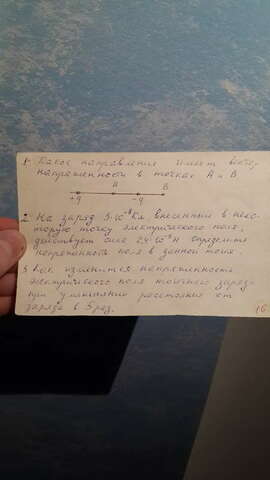 1. Какое направление имеет вектор
напряженности в точках А и В
А В
+q -q
2. На заряд 3·10⁻⁸ Кл, внесенный в неко-
торую точку электрического поля,
действует сила 2,4·10⁻⁵ Н. Определите
напряженность поля в данной точке.
3. Как изменится напряженность
электрического поля точечного заряда
при уменьшении расстояния от
заряда в 3 раз.